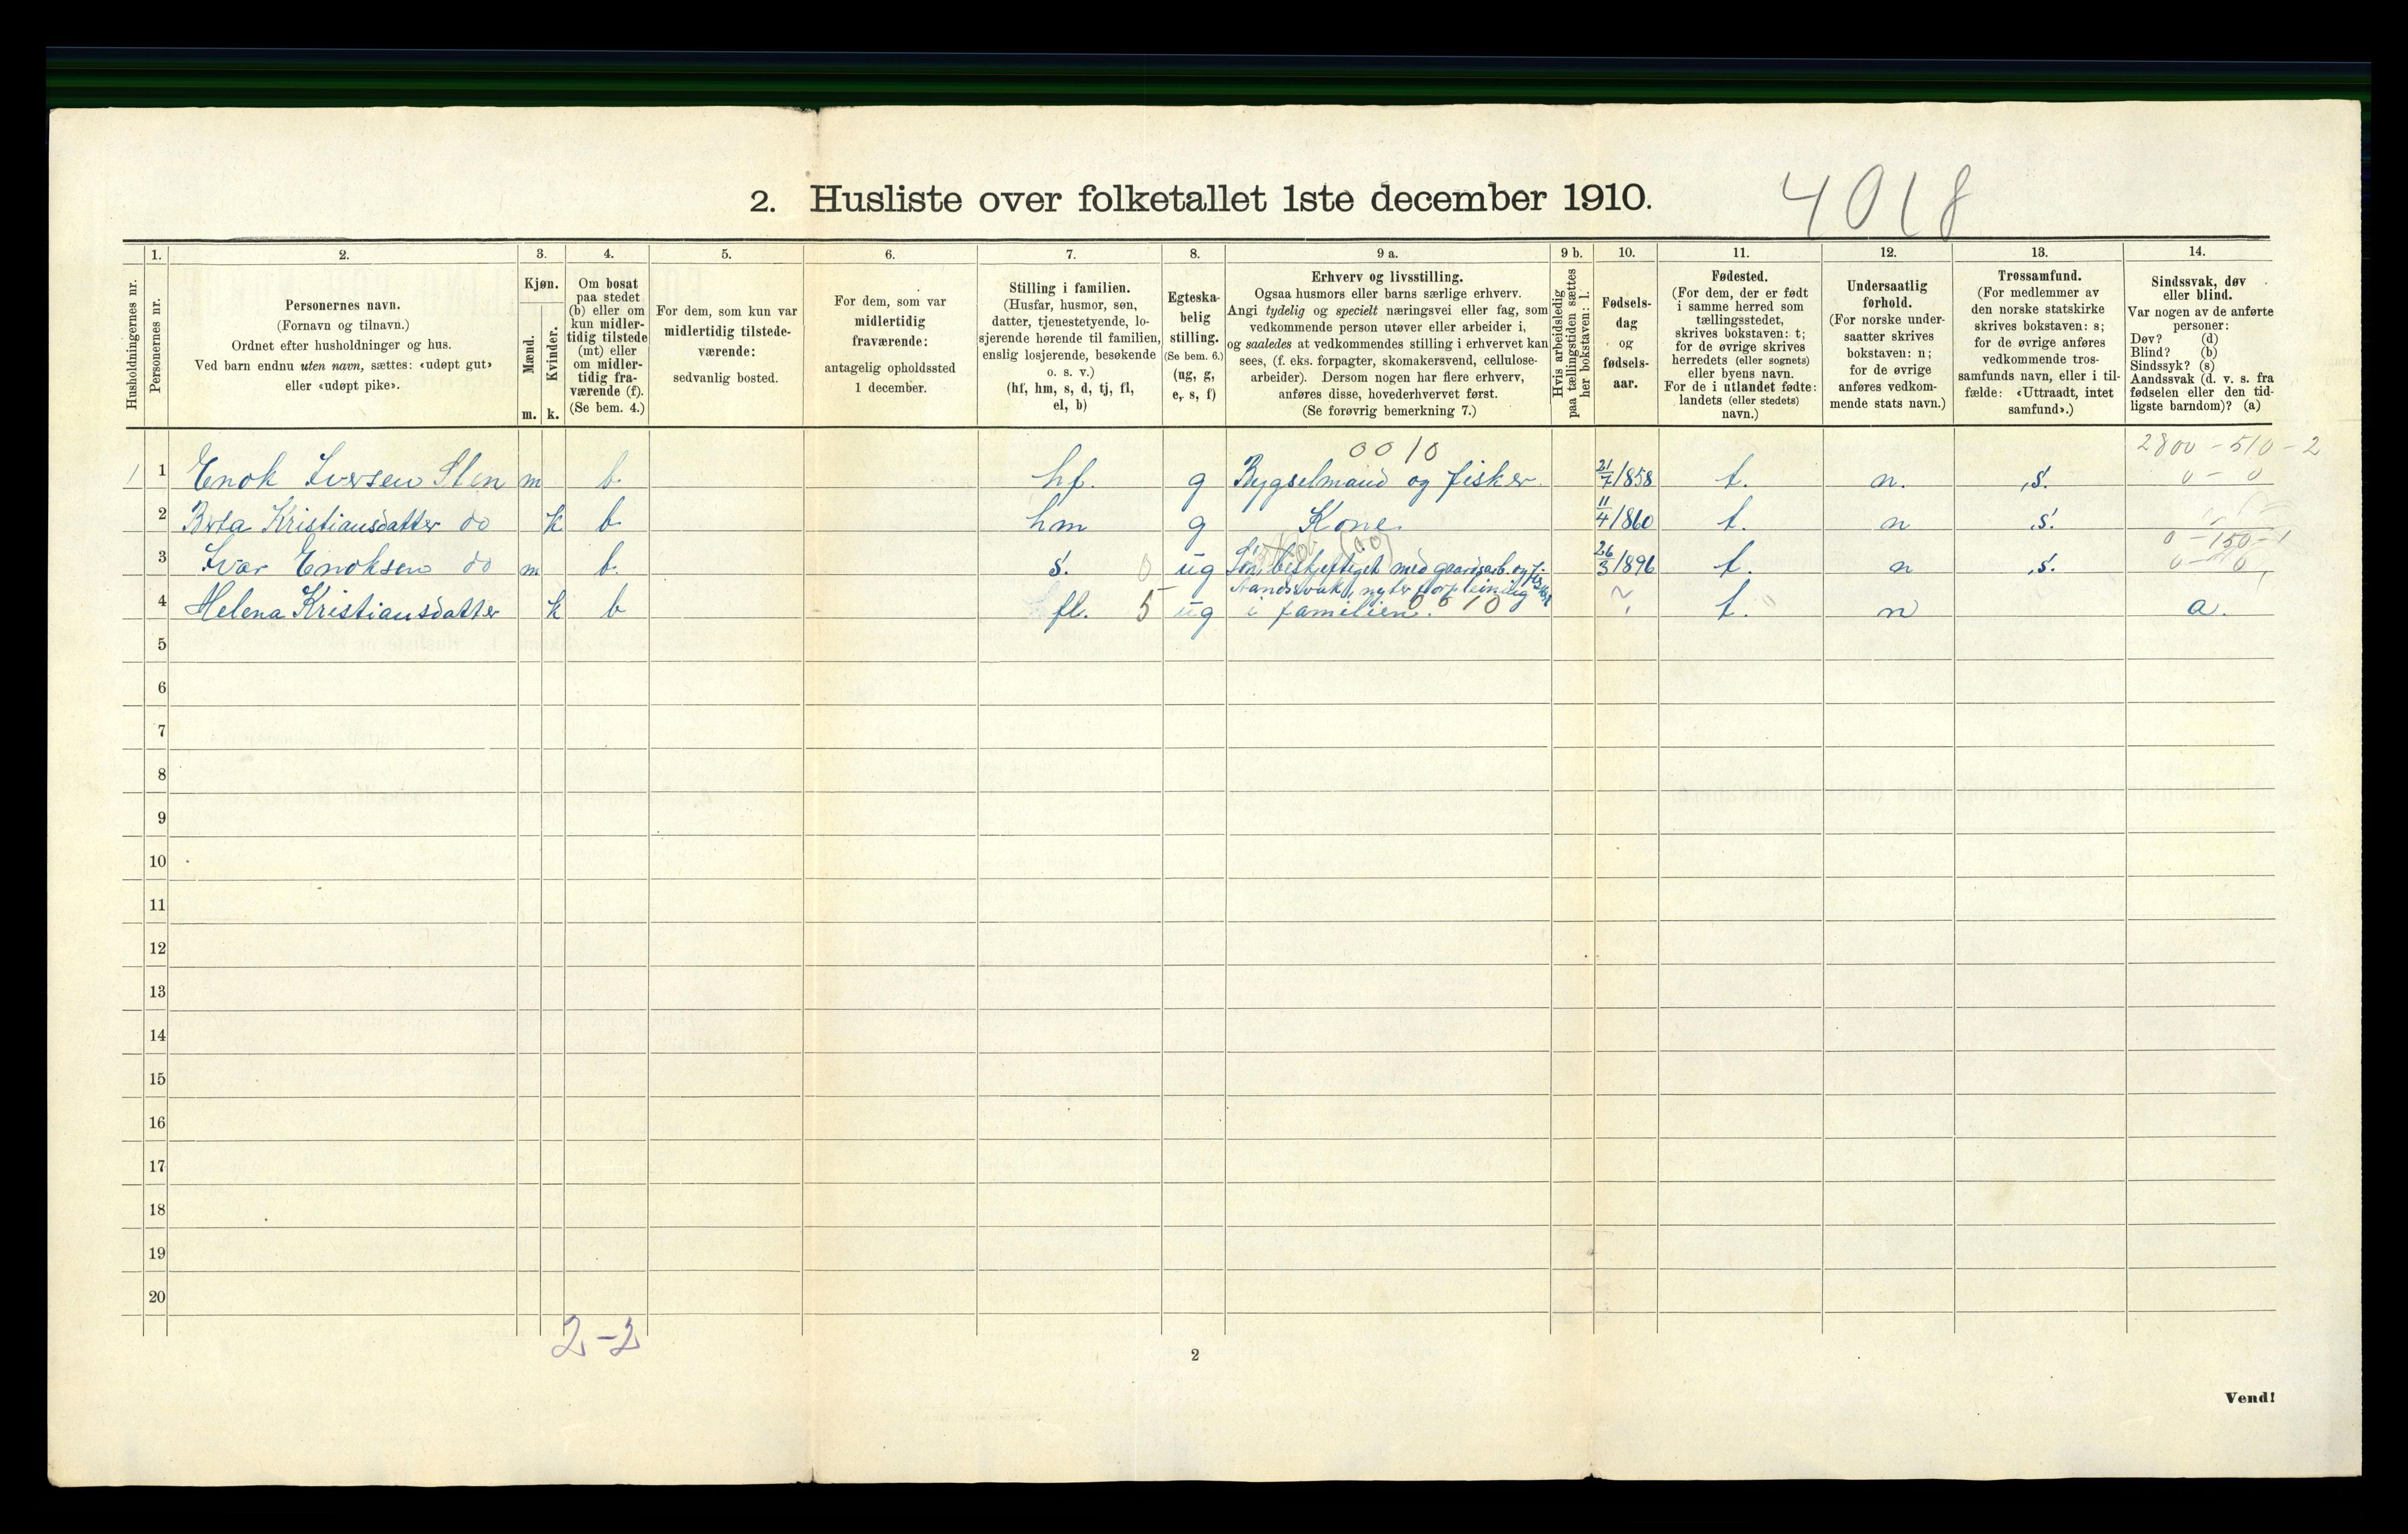 2. Husliste over folketallet 1ste december 1910.
4018
Husholdningernes nr.
1.
Personernes nr.
2.
Personernes navn.
(Fornavn og tilnavn.)
Ordnet efter husholdninger og hus.
Ved barn endnu uten navn, sættes: «udøpt gut»
eller «udøpt pike».
3.
Kjøn.
Mænd.
m.
Kvinder.
k.
4.
Om bosat
paa stedet
(b) eller om
kun midler-
tidig tilstede
(mt) eller
om midler-
tidig fra-
værende (f).
(Se bem. 4.)
5.
For dem, som kun var
midlertidig tilstede-
værende:
sedvanlig bosted.
6.
For dem, som var
midlertidig
fraværende:
antagelig opholdssted
1 december.
7.
Stilling i familien.
(Husfar, husmor, søn,
datter, tjenestetyende, lo-
sjerende hørende til familien,
enslig losjerende, besøkende
o. s. v.)
(hf, hm, s, d, tj, fl,
el, b)
8.
Egteska-
belig
stilling.
(Se bem. 6.)
(ug, g,
e, s, f)
9 a.
Erhverv og livsstilling.
Ogsaa husmors eller barns særlige erhverv.
Angi tydelig og specielt næringsvei eller fag, som
vedkommende person utøver eller arbeider i,
og saaledes at vedkommendes stilling i erhvervet kan
sees, (f. eks. forpagter, skomakersvend, cellulose-
arbeider). Dersom nogen har flere erhverv,
anføres disse, hovederhvervet først.
(Se forøvrig bemerkning 7.)
9 b.
Hvis arbeidsledig
paa tællingstiden sættes
her bokstaven: l.
10.
Fødsels-
dag
og
fødsels-
aar.
11.
Fødested.
(For dem, der er født
i samme herred som
tællingsstedet,
skrives bokstaven: t;
for de øvrige skrives
herredets (eller sognets)
eller byens navn.
For de i utlandet fødte:
landets (eller stedets)
navn.)
12.
Undersaatlig
forhold.
(For norske under-
saatter skrives
bokstaven: n;
for de øvrige
anføres vedkom-
mende stats navn.)
13.
Trossamfund.
(For medlemmer av
den norske statskirke
skrives bokstaven: s;
for de øvrige anføres
vedkommende tros-
samfunds navn, eller i til-
fælde: «Uttraadt, intet
samfund».)
14.
Sindssvak, døv
eller blind.
Var nogen av de anførte
personer:
Døv? (d)
Blind? (b)
Sindssyk? (s)
Aandssvak (d. v. s. fra
fødselen eller den tid-
ligste barndom)? (a)
0010 2800-510-2
1 1 Enok Iversen Sten m b. hf. g Bygselmand og fisker. 21/7 1858 t. n. s. 0-0
2 Berta Kristiansdatter do k b. hm g Kone. 11/4 1860 t. n s.
0-150-1
3 Ivar Enoksen do m b. s. 0 ug Søn, beskjeftiget med gaardsarb. og fiskeri 26/3 1896 t. n s.
Aandssvak, nyter forpleining
4 Helena Kristiansdatter k b fl. 5 ug i familien. 0010 ? t. n a.
5
6
7
8
9
10
11
12
13
14
15
16
17
18
19
20
2-2
2
Vend!